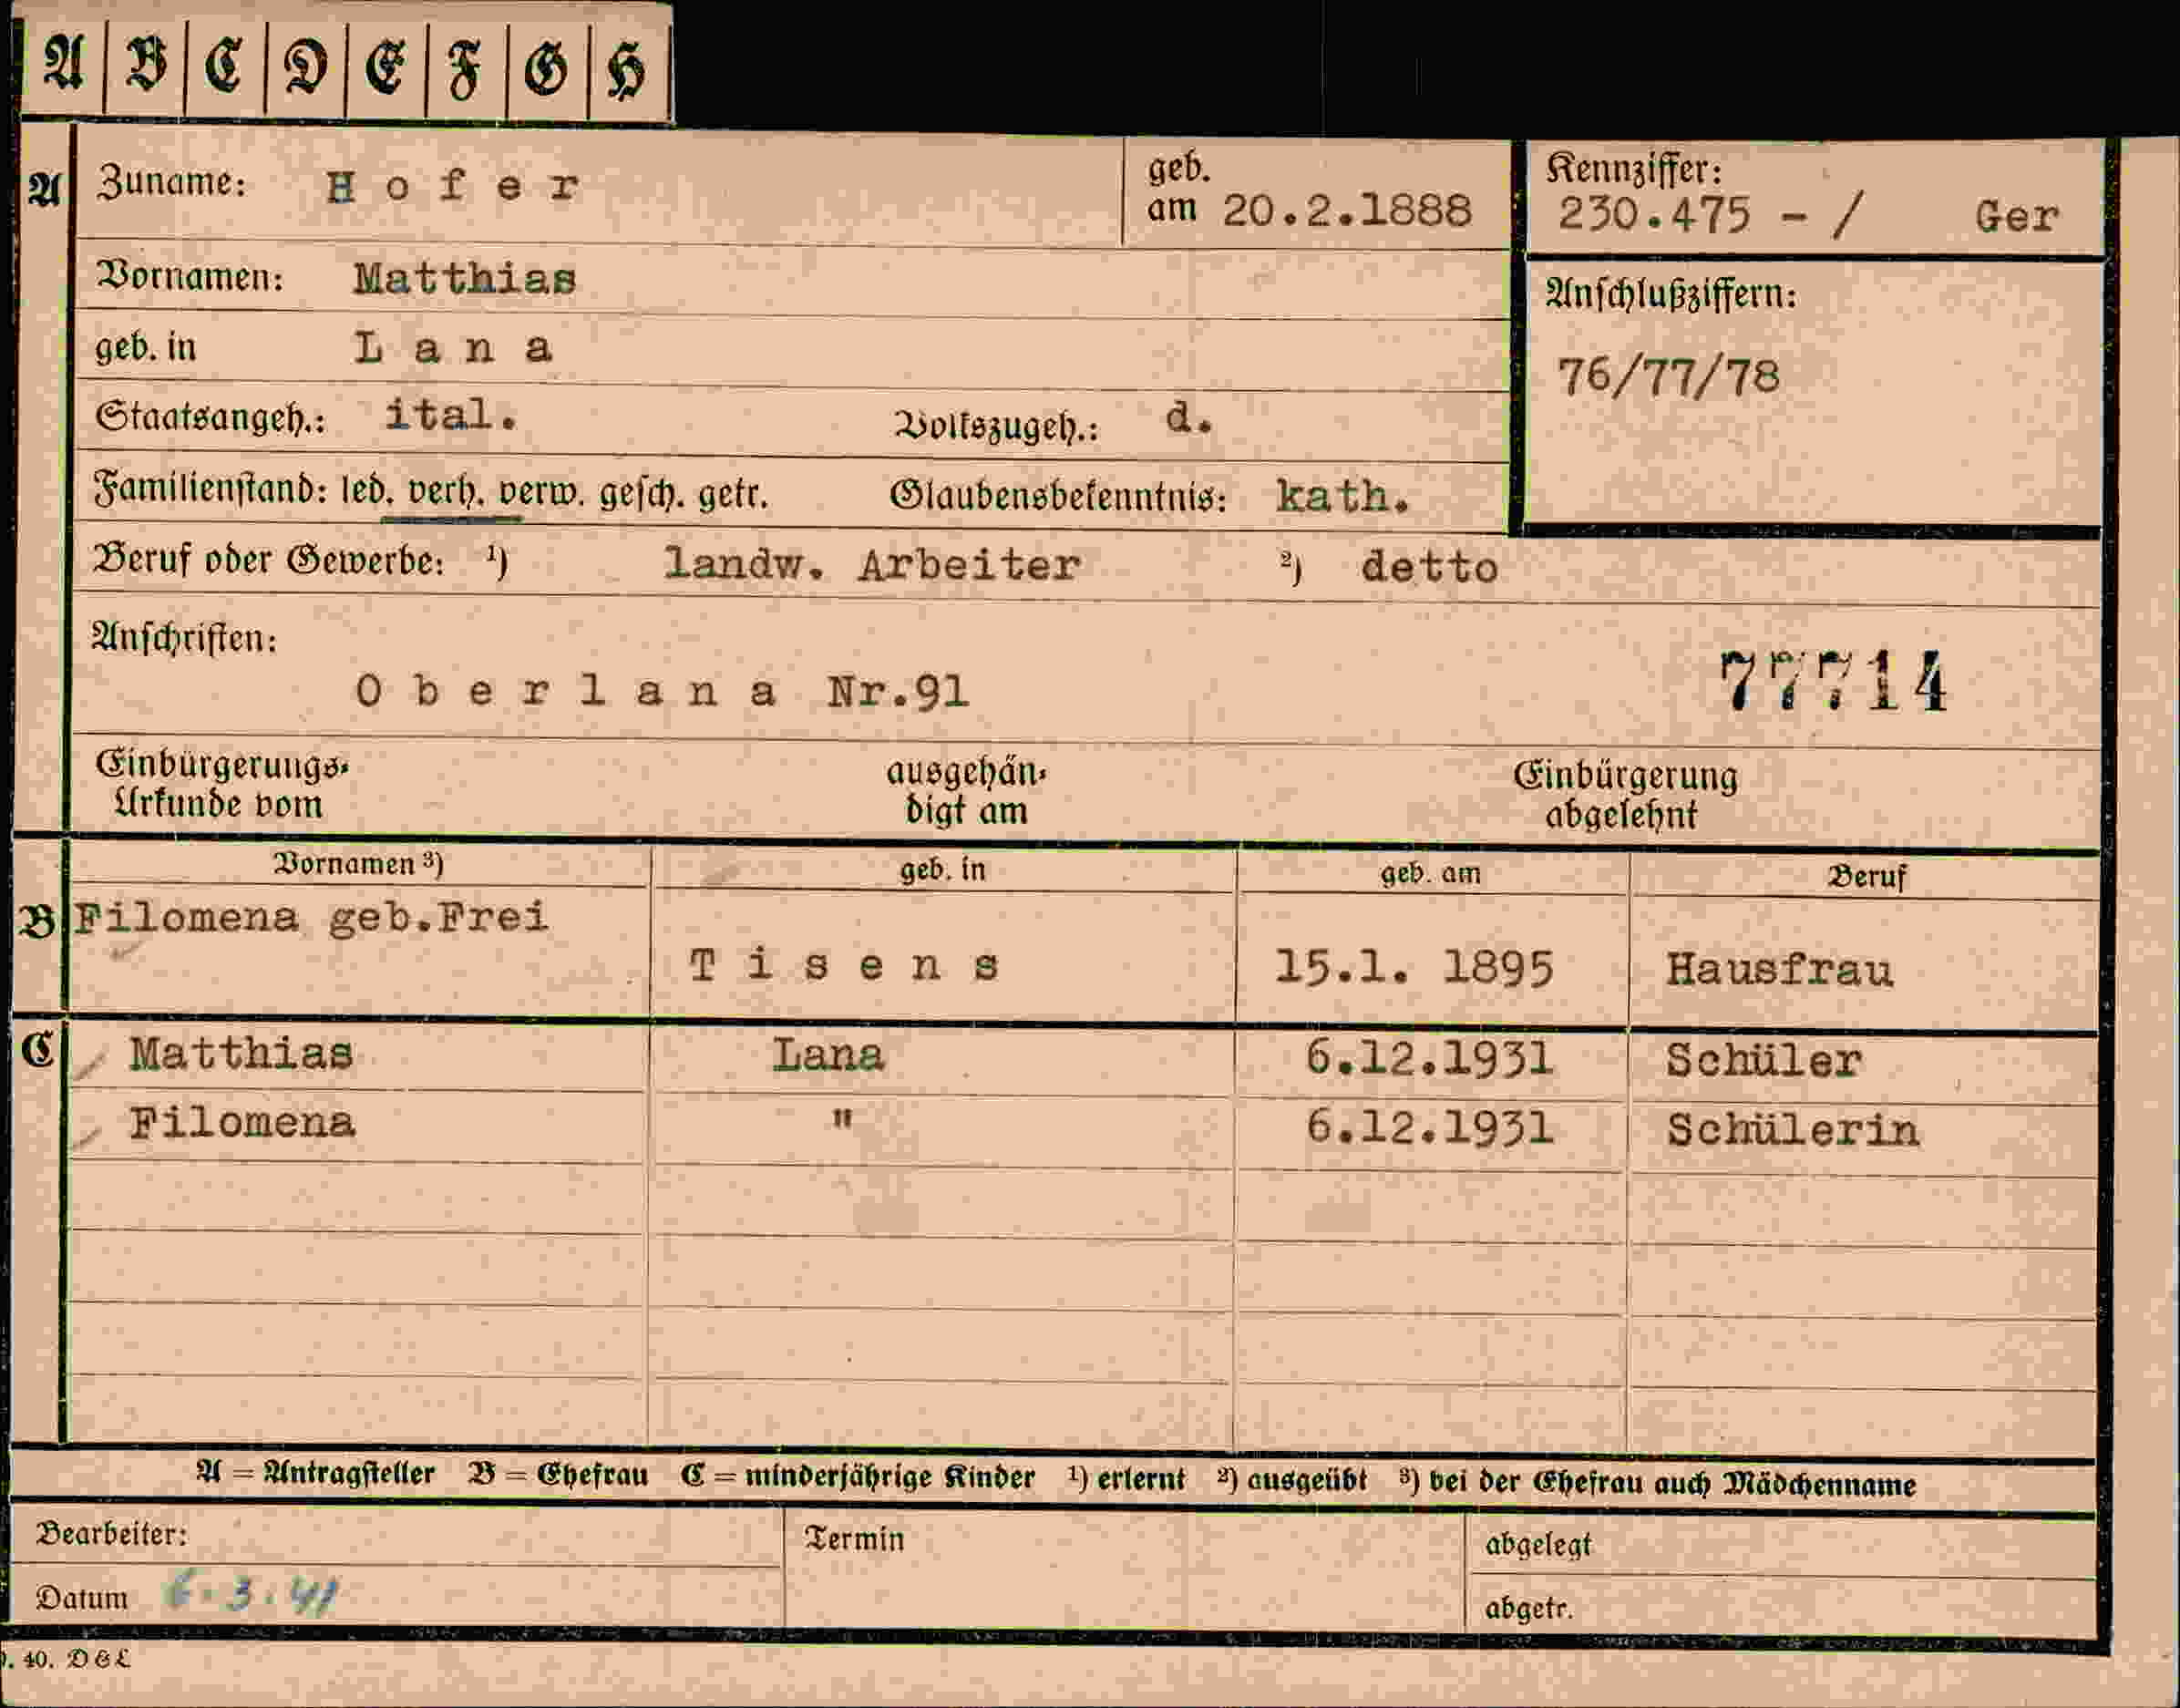 A B C D E F G H
A Zuname: Hofer geb. am 20.2.1888 Kennziffer: 230.475 - / Ger
Vornamen: Matthias
Anschlußziffern:
geb. in Lana
76/77/78
Staatsangeh.: ital. Volkszugeh.: d.
Familienstand: led. verh. verw. gesch. getr. Glaubensbekenntnis: kath.
Beruf oder Gewerbe: ¹) landw. Arbeiter ²) detto
Anschriften:
Oberlana Nr.91 77714
Einbürgerungs-Urkunde vom ausgehändigt am Einbürgerung abgelehnt
Vornamen ³) geb. in geb. am Beruf
B Filomena geb.Frei
Tisens 15.1. 1895 Hausfrau
C Matthias Lana 6.12.1931 Schüler
Filomena " 6.12.1931 Schülerin
A = Antragsteller B = Ehefrau C = minderjährige Kinder ¹) erlernt ²) ausgeübt ³) bei der Ehefrau auch Mädchenname
Bearbeiter: Termin abgelegt
Datum 6.3.41 abgetr.
40. D&L